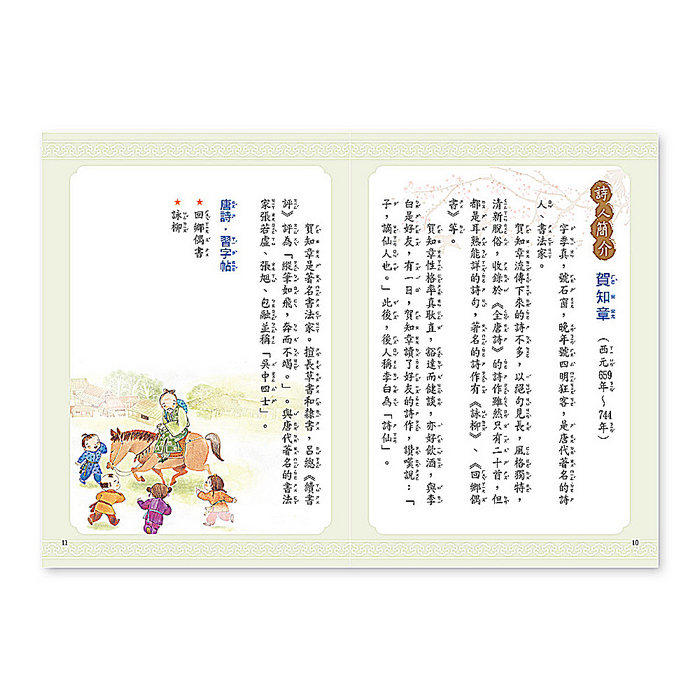 詩人簡介
賀知章(西元659年～744年)
字季真，號石窗，晚年號四明狂客，是唐代著名的詩
人、書法家。
賀知章流傳下來的詩不多，以絕句見長，風格獨特，
清新脫俗，收錄於《全唐詩》的詩作雖然只有二十首，但
都是耳熟能詳的詩句，著名的詩作有《詠柳》、《回鄉偶
書》等。
賀知章性格率真耿直，豁達而健談，亦好飲酒，與李
白是好友，有一日，賀知章讀了好友的詩作，讚嘆說：「
子，謫仙人也。」此後，後人稱李白為「詩仙」。
10
賀知章是著名書法家。擅長草書和隸書，呂總《續書
評》評為「縱筆如飛，奔而不竭。」。與唐代著名的書法
家張若虛、張旭、包融並稱「吳中四士」。
唐詩・習字帖
★回鄉偶書
★詠柳
11